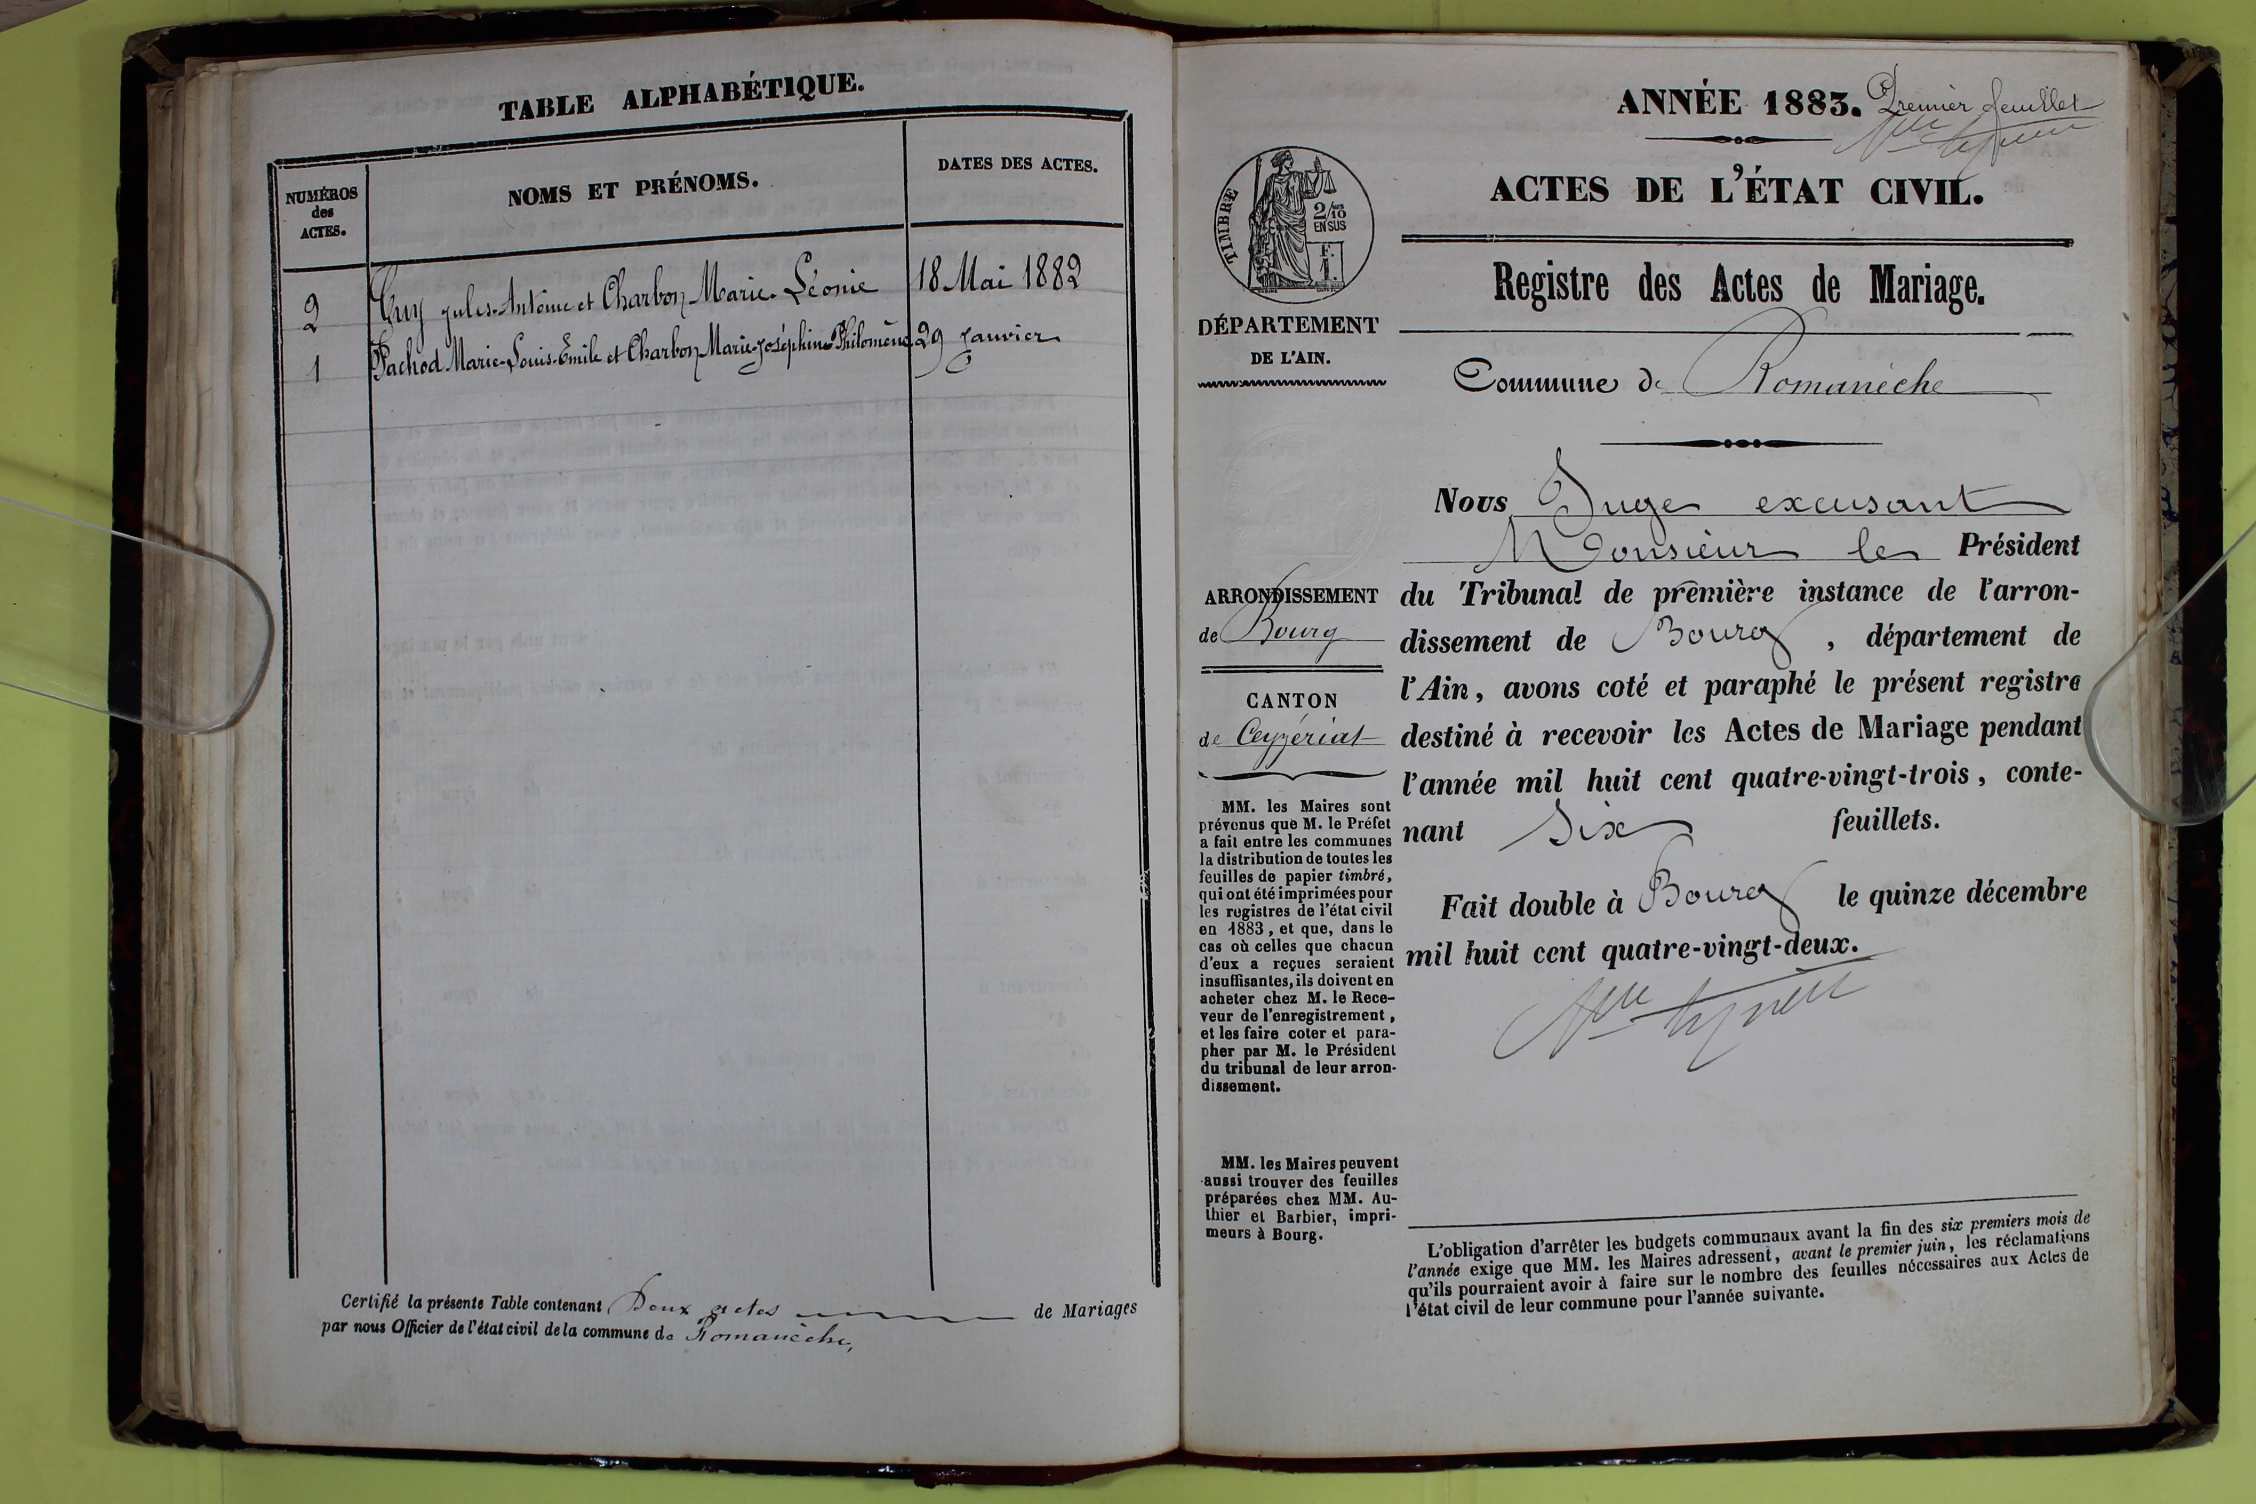 TABLE ALPHABÉTIQUE.
NUMÉROS
des
ACTES.
NOMS ET PRÉNOMS.
DATES DES ACTES.
2 Guy Jules-Antoine et Charbon Marie-Léonie 18 Mai 1882
1 Pachod Marie-Louis-Emile et Charbon Marie-Joséphine Philomène 29 Janvier
Certifié la présente Table contenant Deux actes de Mariages
par nous Officier de l'état civil de la commune de Romanèche,
ANNÉE 1883.
Premier feuillet
ACTES DE L'ÉTAT CIVIL.
TIMBRE
2/10
EN SUS
F.
1.
Registre des Actes de Mariage.
DÉPARTEMENT
DE L'AIN.
Commune de Romanèche
ARRONDISSEMENT
de Bourg
CANTON
de Ceyzériat
MM. les Maires sont
prévenus que M. le Préfet
a fait entre les communes
la distribution de toutes les
feuilles de papier timbré,
qui ont été imprimées pour
les registres de l'état civil
en 1883, et que, dans le
cas où celles que chacun
d'eux a reçues seraient
insuffisantes, ils doivent en
acheter chez M. le Rece-
veur de l'enregistrement,
et les faire coter et para-
pher par M. le Président
du tribunal de leur arron-
dissement.
MM. les Maires peuvent
aussi trouver des feuilles
préparées chez MM. Au-
thier et Barbier, impri-
meurs à Bourg.
Nous Juge excusant
Monsieur le Président
du Tribunal de première instance de l'arron-
dissement de Bourg, département de
l'Ain, avons coté et paraphé le présent registre
destiné à recevoir les Actes de Mariage pendant
l'année mil huit cent quatre-vingt-trois, conte-
nant Six feuillets.
Fait double à Bourg le quinze décembre
mil huit cent quatre-vingt-deux.
L'obligation d'arrêter les budgets communaux avant la fin des six premiers mois de
l'année exige que MM. les Maires adressent, avant le premier juin, les réclamations
qu'ils pourraient avoir à faire sur le nombre des feuilles nécessaires aux Actes de
l'état civil de leur commune pour l'année suivante.